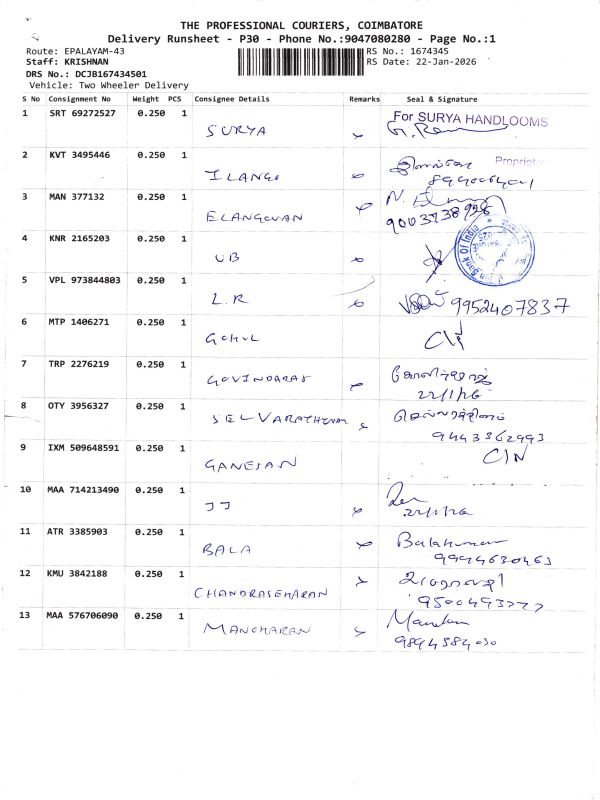 THE PROFESSIONAL COURIERS, COIMBATORE
Delivery Runsheet - P30 - Phone No.:9047080280 - Page No.:1
Route: EPALAYAM-43 RS No.: 1674345
Staff: KRISHNAN RS Date: 22-Jan-2026
DRS No.: DCJB167434501
Vehicle: Two Wheeler Delivery
S No Consignment No Weight PCS Consignee Details Remarks Seal & Signature
1 SRT 69272527 0.250 1 SURYA For SURYA HANDLOOMS
Proprietor
2 KVT 3495446 0.250 1 ILANGO
3 MAN 377132 0.250 1 ELANGOVAN
4 KNR 2165203 0.250 1 UB
5 VPL 973844803 0.250 1 L.R 9952407837
6 MTP 1406271 0.250 1 GOKUL
7 TRP 2276219 0.250 1 GOVINDARAJ கோவிந்தராஜ்
22/1/26
8 OTY 3956327 0.250 1 SELVARATHINAM செல்வரத்தினம்
9443362993
9 IXM 509648591 0.250 1 GANESAN C/N
10 MAA 714213490 0.250 1 JJ
22/1/26
11 ATR 3385903 0.250 1 BALA Balakumar
9994630463
12 KMU 3842188 0.250 1 CHANDRASEKARAN
9500493777
13 MAA 576706090 0.250 1 MANOHARAN
9894584030